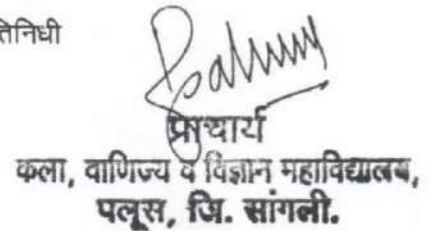 तिनिधी
प्राचार्य
कला, वाणिज्य व विज्ञान महाविद्यालय,
पलूस, जि. सांगली.